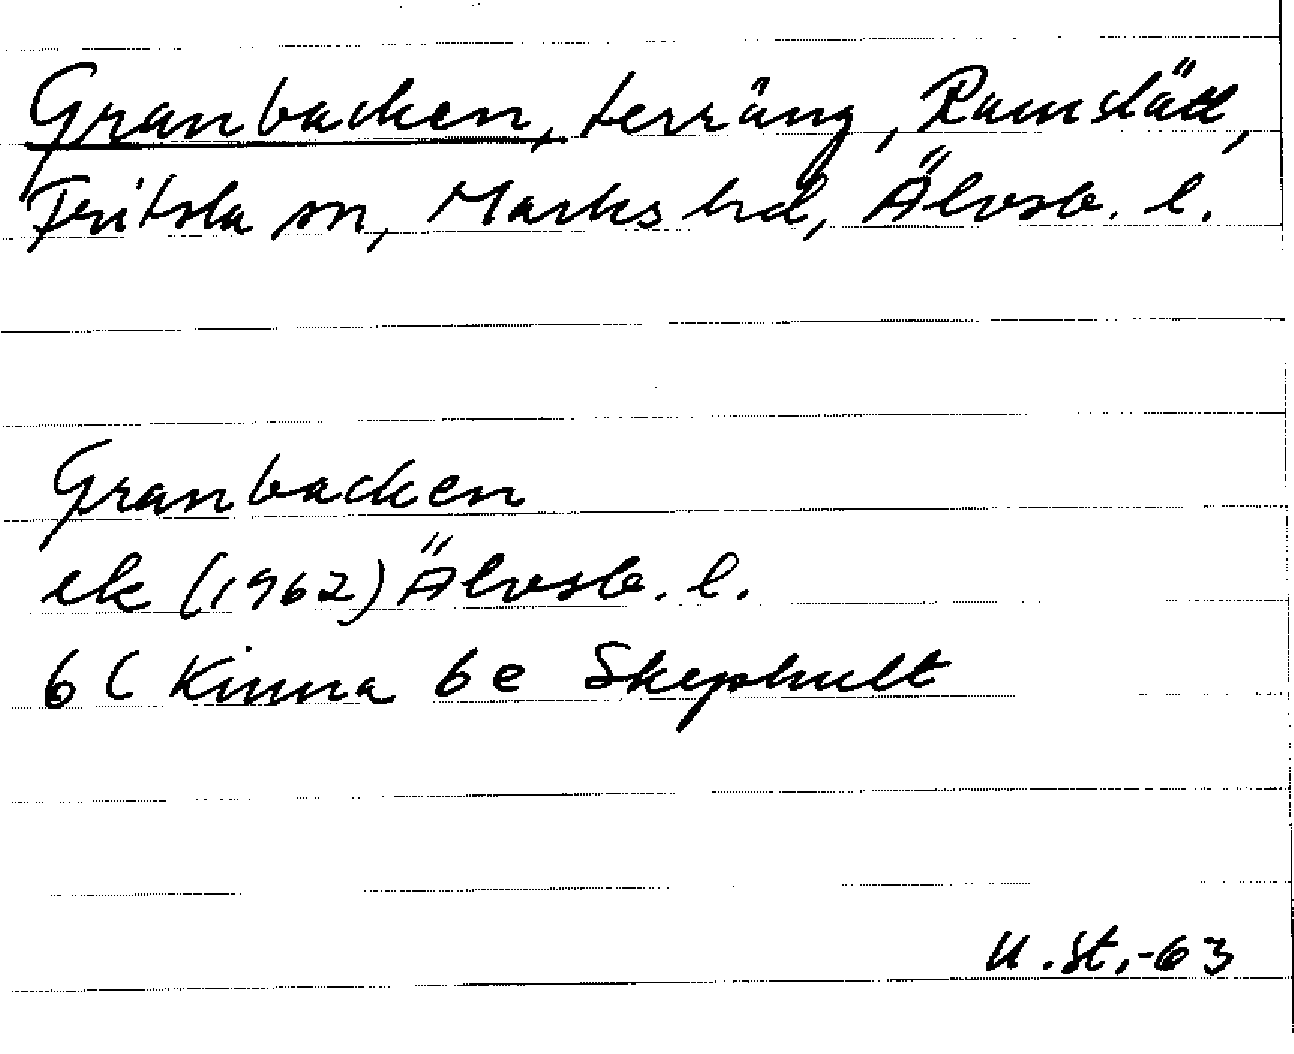 Granbacken, terräng, Ramslätt,
Fritsla sn, Marks hd, Älvsb. l.
Granbacken
ek (1962) Älvsb. l.
6 C Kinna 6 e Skephult
U. St. -63